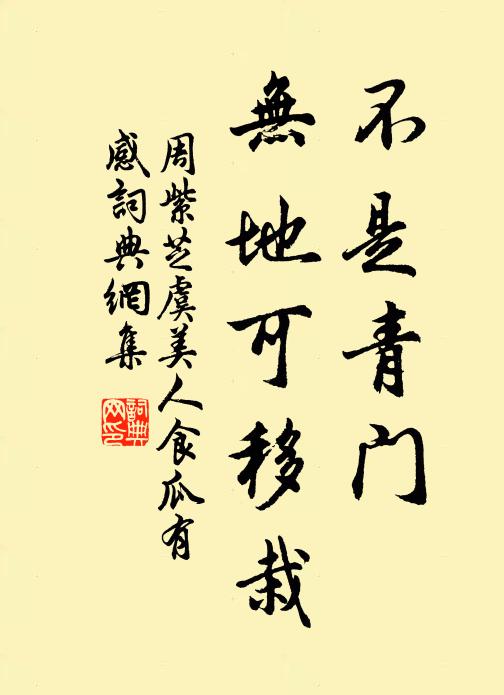 不是青門
無地可移栽
周紫芝虞美人食瓜有
感詞典網集
詞典
网印